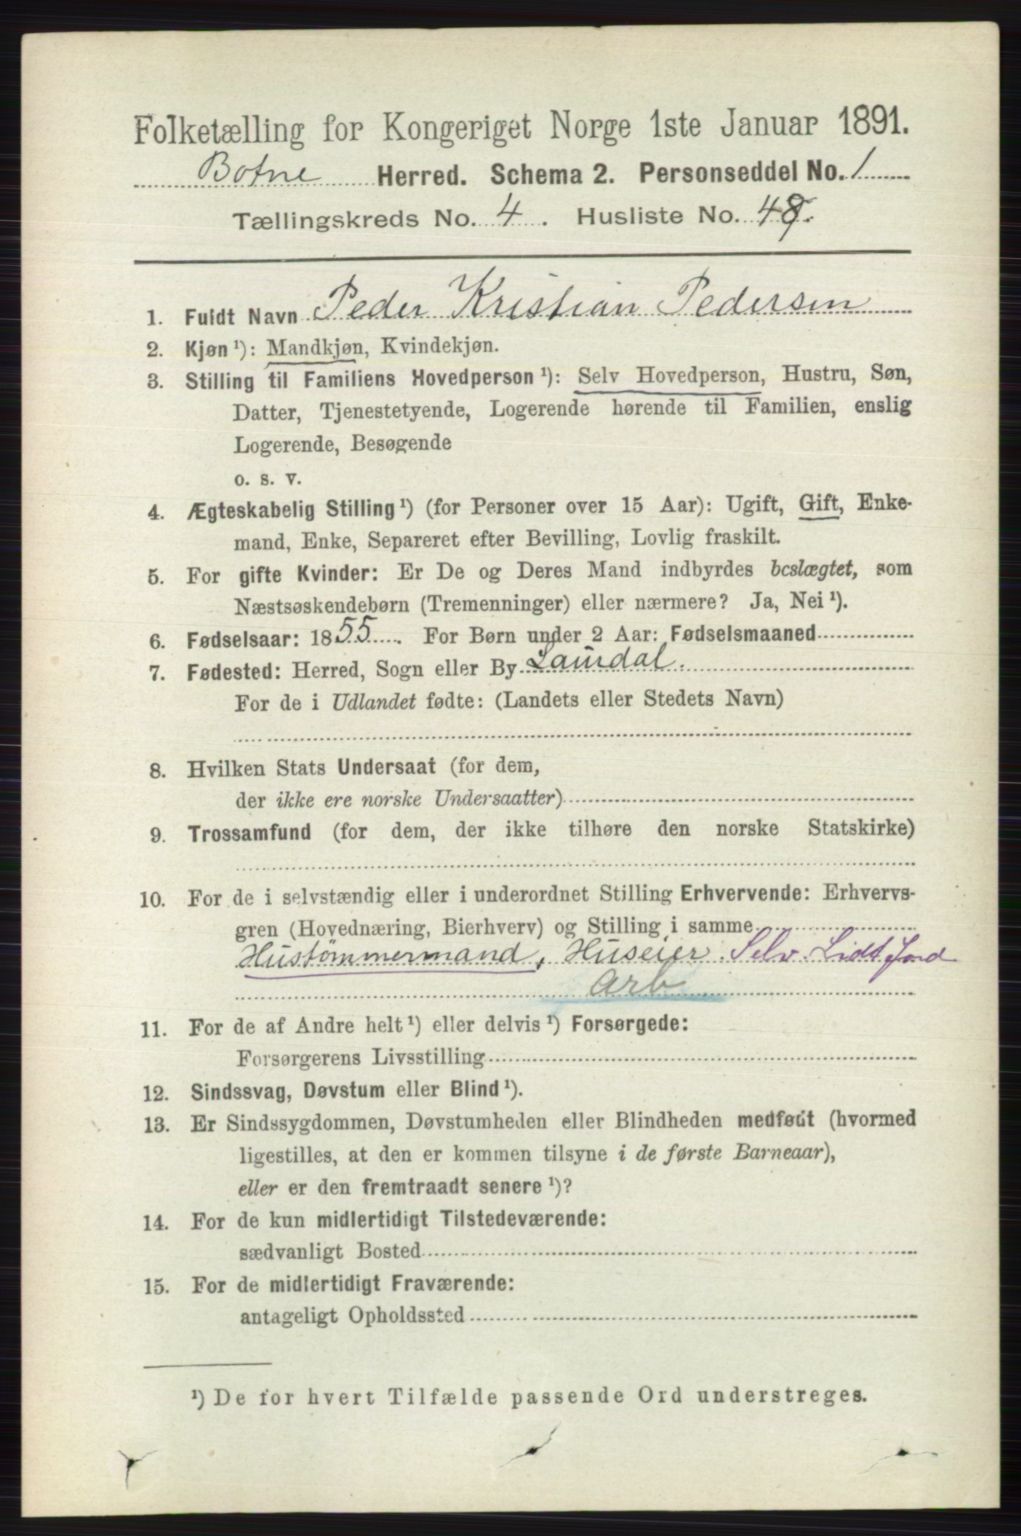 Folketælling for Kongeriget Norge 1ste Januar 1891.
Botne Herred. Schema 2. Personseddel No. 1
Tællingskreds No. 4. Husliste No.
1. Fuldt Navn Peder Kristian Pedersen
2. Kjøn ¹): Mandkjøn, Kvindekjøn.
3. Stilling til Familiens Hovedperson ¹): Selv Hovedperson, Hustru, Søn,
Datter, Tjenestetyende, Logerende hørende til Familien, enslig
Logerende, Besøgende
o. s. v.
4. Ægteskabelig Stilling ¹) (for Personer over 15 Aar): Ugift, Gift, Enke-
mand, Enke, Separeret efter Bevilling, Lovlig fraskilt.
5. For gifte Kvinder: Er De og Deres Mand indbyrdes beslægtet, som
Næstsøskendebørn (Tremenninger) eller nærmere? Ja, Nei ¹).
6. Fødselsaar: 1855. For Børn under 2 Aar: Fødselsmaaned
7. Fødested: Herred, Sogn eller By
For de i Udlandet fødte: (Landets eller Stedets Navn)
8. Hvilken Stats Undersaat (for dem,
der ikke ere norske Undersaatter)
9. Trossamfund (for dem, der ikke tilhøre den norske Statskirke)
10. For de i selvstændig eller i underordnet Stilling Erhvervende: Erhvervs-
gren (Hovednæring, Bierhverv) og Stilling i samme
Hustømmermand, Huseier. Selv. Lidt Jord
Arb
11. For de af Andre helt ¹) eller delvis ¹) Forsørgede:
Forsørgerens Livsstilling
12. Sindssvag, Døvstum eller Blind ¹).
13. Er Sindssygdommen, Døvstumheden eller Blindheden medfødt (hvormed
ligestilles, at den er kommen tilsyne i de første Barneaar),
eller er den fremtraadt senere ¹)?
14. For de kun midlertidigt Tilstedeværende:
sædvanligt Bosted
15. For de midlertidigt Fraværende:
antageligt Opholdssted
¹) De for hvert Tilfælde passende Ord understreges.